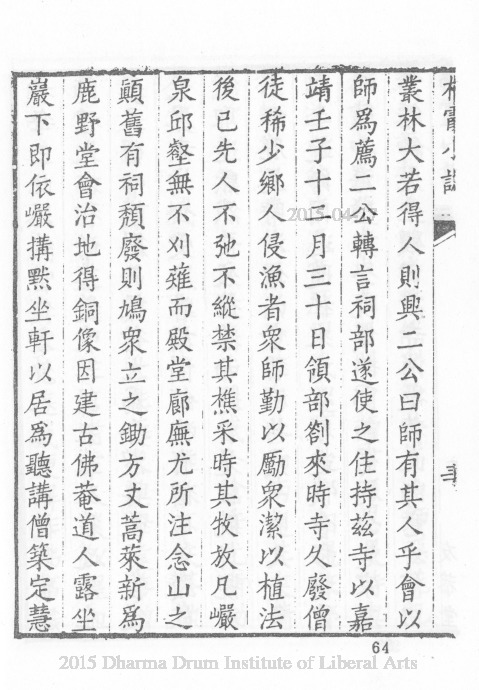 叢林大若得人則興二公曰師有其人乎會以
師爲薦二公轉言祠部遂使之住持茲寺以嘉
靖壬子十二月三十日領部劄來時寺久廢僧
徒稀少鄉人侵漁者衆師勤以勵衆潔以植法
後已先人不弛不縱禁其樵采時其牧放凡巖
泉邱壑無不刈薙而殿堂廊廡尤所注念山之
顚舊有祠頹廢則鳩衆立之鋤方丈蒿萊新爲
鹿野堂會治地得銅像因建古佛菴道人露坐
巖下即依巖搆默坐軒以居爲聽講僧築定慧
64
2015 Dharma Drum Institute of Liberal Arts